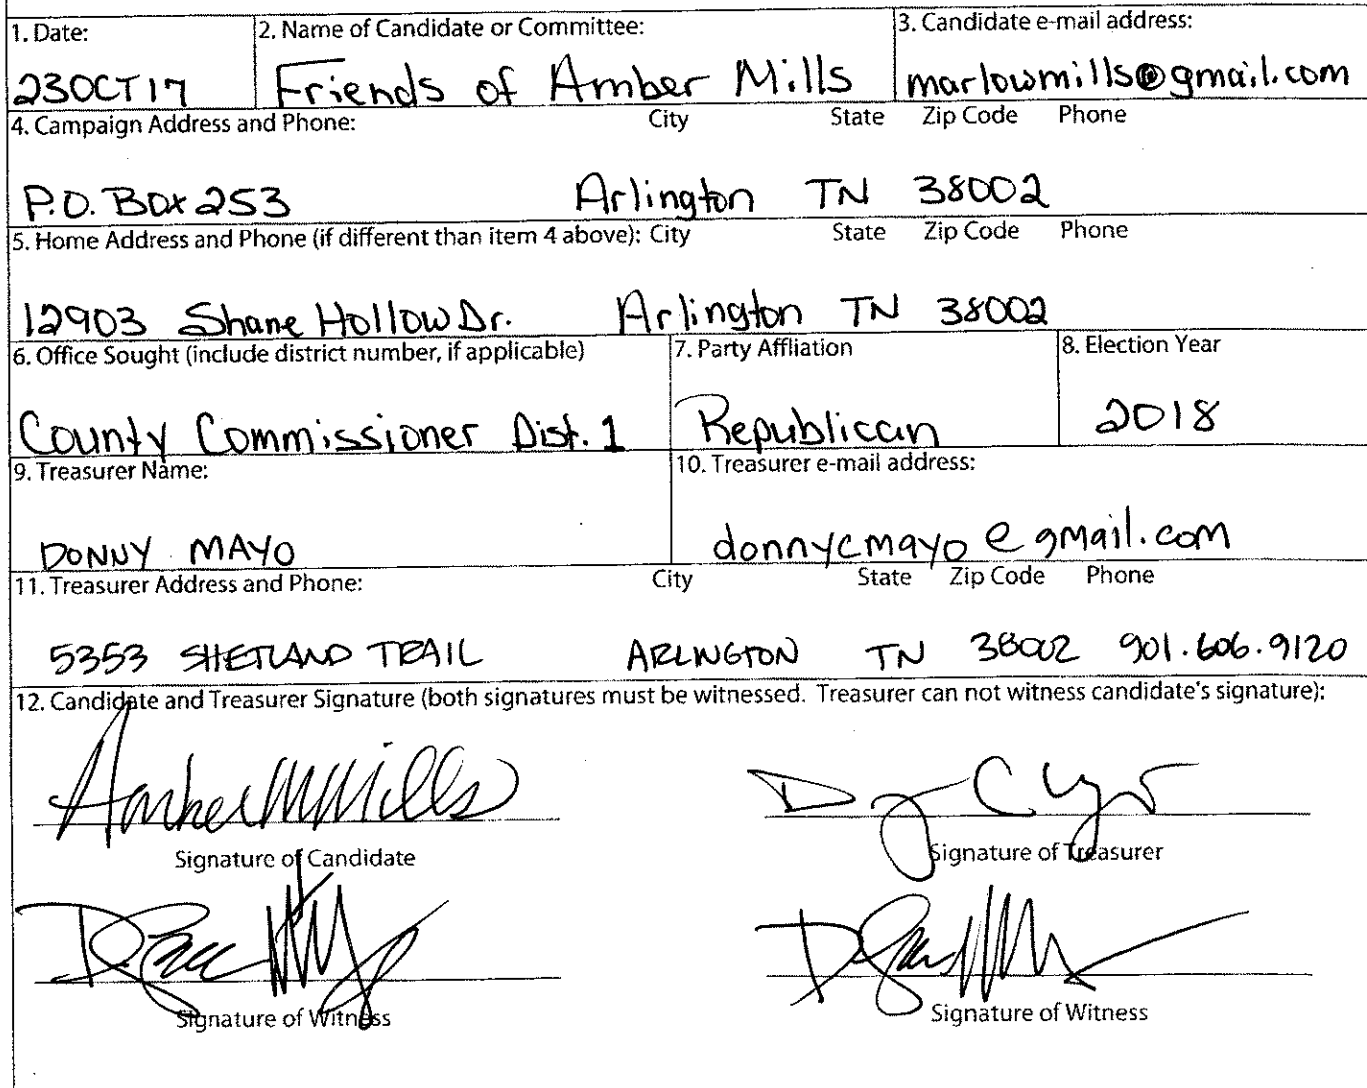 1. Date: 2. Name of Candidate or Committee: 3. Candidate e-mail address:
23OCT17 Friends of Amber Mills marlowmills@gmail.com
4. Campaign Address and Phone: City State Zip Code Phone
P.O. Box 253 Arlington TN 38002
5. Home Address and Phone (if different than item 4 above): City State Zip Code Phone
12903 Shane Hollow Dr. Arlington TN 38002
6. Office Sought (include district number, if applicable) 7. Party Affliation 8. Election Year
County Commissioner Dist. 1 Republican 2018
9. Treasurer Name: 10. Treasurer e-mail address:
DONNY MAYO donnycmayo@gmail.com
11. Treasurer Address and Phone: City State Zip Code Phone
5353 SHETLAND TRAIL ARLINGTON TN 38002 901.606.9120
12. Candidate and Treasurer Signature (both signatures must be witnessed. Treasurer can not witness candidate's signature):
Amber M Mills
Signature of Candidate Signature of Treasurer
Signature of Witness Signature of Witness